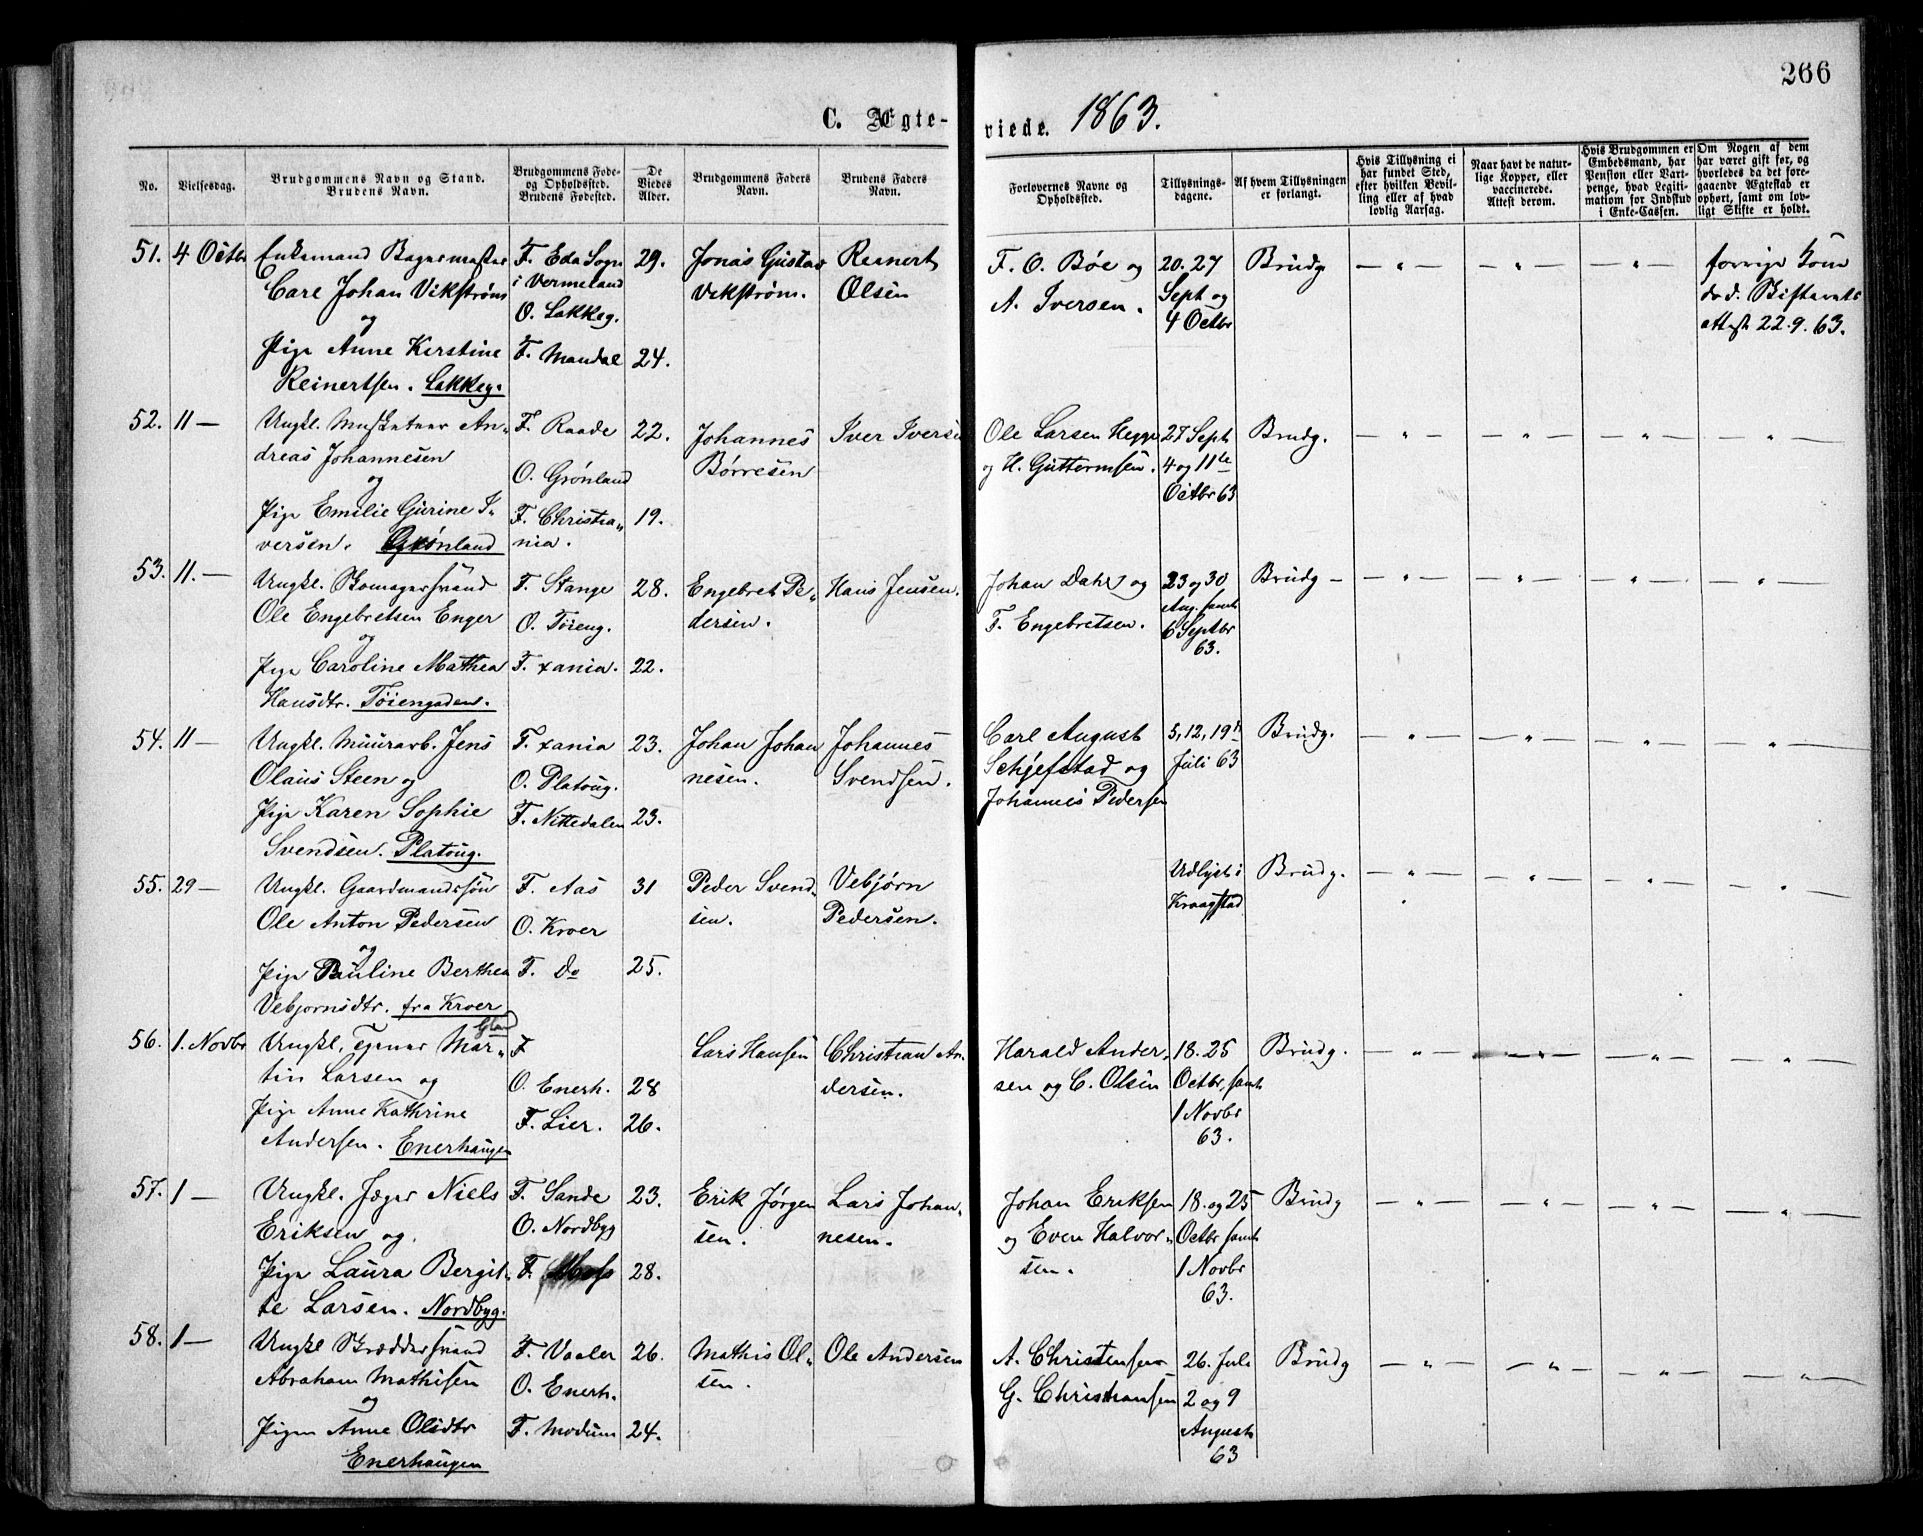 266
C. Ægte-
viede. 1863.
No.
Vielsesdag.
Brudgommens Navn og Stand.
Brudens Navn.
Brudgommens Føde-
og Opholdsted.
Brudens Fødested.
De
Viedes
Alder.
Brudgommens Faders
Navn.
Brudens Faders
Navn.
Forlovernes Navne og
Opholdsted.
Tillysnings-
dagene.
Af hvem Tillysningen
er forlangt.
Hvis Tillysning ei
har fundet Sted,
efter hvilken Bevil-
ling eller af hvad
lovlig Aarsag.
Naar havt de natur-
lige Kopper, eller
vaccinerede.
Attest derom.
Hvis Brudgommen er
Embedsmand, har
Pension eller Vart-
penge, hvad Legiti-
mation for Indskud
i Enke-Cassen.
Om Nogen af dem
har været gift før, og
hvorledes da det fore-
gaaende Ægteskab er
ophørt, samt om lov-
ligt Skifte er holdt.
51. 4 Octbr
Enkemand Bagermester
Carl Johan Vikstrøm
og
Pige Anne Kerstine
Reinertsen. Lakkeg.
F. Eda Sogn
i Vermeland
O. Lakkeg.
F. Mandal
29.
24.
Jonas Gustav
Vikstrøm.
Reinert
Olsen
F. O. Bøe og
A. Iversen.
20. 27
Sept og
4 Octbr
Brudg
— " —
— " —
— " —
forrige Kone
død. Skiftents
attest 22.9.63.
52. 11 —
Ungkl. Musketeer An-
dreas Johannesen
og
Pige Emilie Gurine I-
versen. Grønland
F. Raade
O. Grønland
F. Christia-
nia.
22.
19.
Johannes
Børresen
Iver Iversen
Ole Larsen Hegge
og H. Guttormsen.
27 Sept
4 og 11te
Octbr 63
Brudg.
— " —
— " —
— " —
— " —
53. 11. —
Ungkl. Skomagersvend
Ole Engebretsen Enger
og
Pige Caroline Mathea
Hansdtr. Tøiengaden.
F. Stange
O. Tøieng.
F. Xania.
28.
22.
Engebret Pe-
dersen.
Hans Jensen.
Johan Dahl og
F. Engebretsen.
23 og 30
Aug. samt
6 Septbr
63.
Brudg —
— " —
— " —
— " —
— " —
54. 11 —
Ungkl. Muurarb. Jens
Olaus Steen og
Pige Karen Sophie
Svendsen. Platoug.
F. Xania
O. Platoug.
F. Nittedalen
23.
23.
Johan Johan
nesen.
Johannes
Svendsen.
Carl August
Schjefstad og
Johannes Pedersen
5, 12, 19de
Juli 63
Brudg.
— " —
— " —
— " —
— " —
55. 29 —
Ungkl. Gaardmandssøn
Ole Anton Pedersen
og
Pige Pauline Berthea
Vebjørnsdtr. fra Kroer
F. Aas
O. Kroer
F. Do
31
25.
Peder Svend-
sen.
Vebjørn
Pedersen.
Udlyst i
Kraagstad
Brudg.
— " —
— " —
— " —
— " —
56. 1. Novbr
Ungkl. Tjener Mar-
tin Larsen og
Pige Anne Kathrine
Andersen. Enerhaugen
F
O. Enerh.
F. Lier.
28
26.
Lars Hansen
Christian An-
dersen.
Harald Ander-
sen og C. Olsen
18. 25
Octbr, samt
1 Novbr
63.
Brudg.
— " —
— " —
— " —
— " —
57. 1 —
Ungkl. Jæger Niels
Eriksen og.
Pige Laura Bergit-
te Larsen. Nordbyg.
F. Sande
O. Nordbyg
F. Moss
23.
28.
Erik Jørgen
sen.
Lars Johan-
nesen.
Johan Eriksen
og Even Halvor-
sen.
18. og 25
Octbr samt
1 Novbr
63.
Brudg
— " —
— " —
— " —
— " —
58. 1 —
Ungkl Bræddersvend
Abraham Mathisen
og
Pigen Anne Olsdtr
Enerhaugen
F. Vaaler
O. Enerh.
F. Modum
26.
24.
Mathis Ol-
sen.
Ole Andersen
A. Christensen
G. Christiansen
26. Juli
2 og 9
August
63
Brudg
— " —
— " —
— " —
— " —